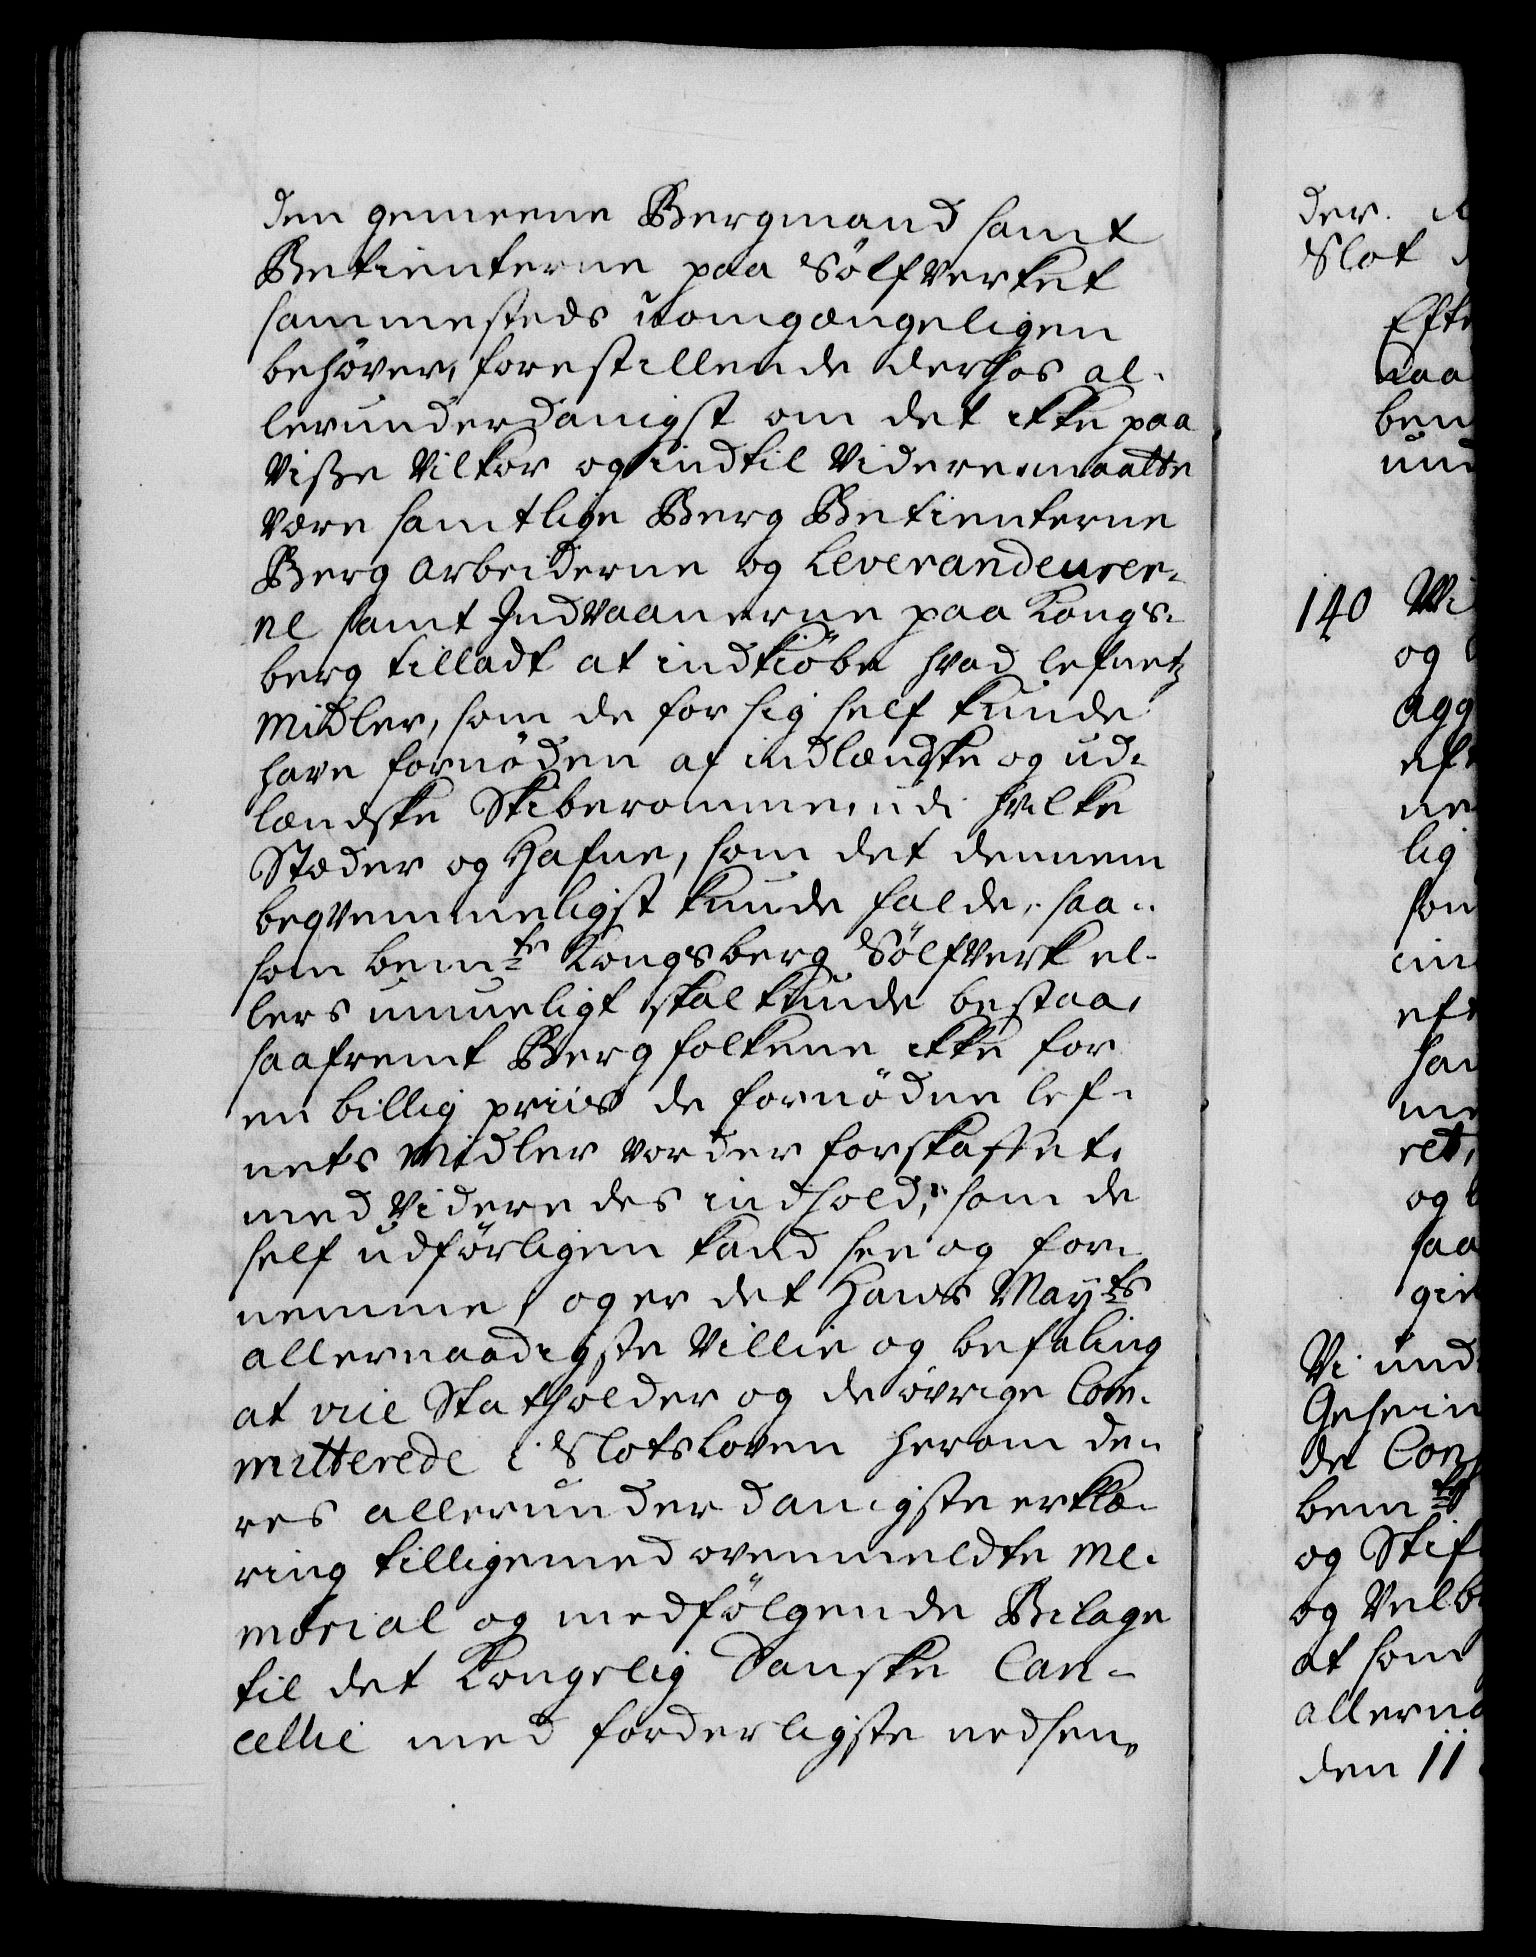 den gemeene Bergmand samt
Betienterne paa Sölfverket
sammesteds uomgængeligen
behöver, forestillende derhos al-
lerunderdanigst om det ikke paa
Visse Vilkor og indtil Videre maatte
være samtlige Berg Betienterne
Berg Arbeiderne og Leverandeurer-
ne samt Indvaanerne paa Kongs-
berg tilladt at indkiöbe hvad lefnetz
Midler, som de for sig self kunde
have fornöden af indlændske og ud-
lændske Skiberomme, udi hvilke
Stæder og Hafne, som det dennem
beqvemmeligst kunde falde, saa-
som bemte Kongsberg Sölfverk el-
lers umueligt skal kunde bestaa,
saafremt Bergfolkene ikke for
en billig priis de fornödne lef-
nets Midler vorder forskaffet,
med Videre des indhold, som de
self udförligen kand see og for-
nemme, og er det Hans Mayts
allernaadigste Villie og befaling
at vice Statholder og de övrige Com-
mitterede i Slotsloven herom de-
res allerunderdanigste erklæ-
ring tilligemed ovenmeldte Me-
morial og medfölgende Bilage
til det Kongelig Danske Can-
cellie med forderligste nedsen-
der.
Slot
140
og
Vi und
de
bemte
og Stif
at som
den 11